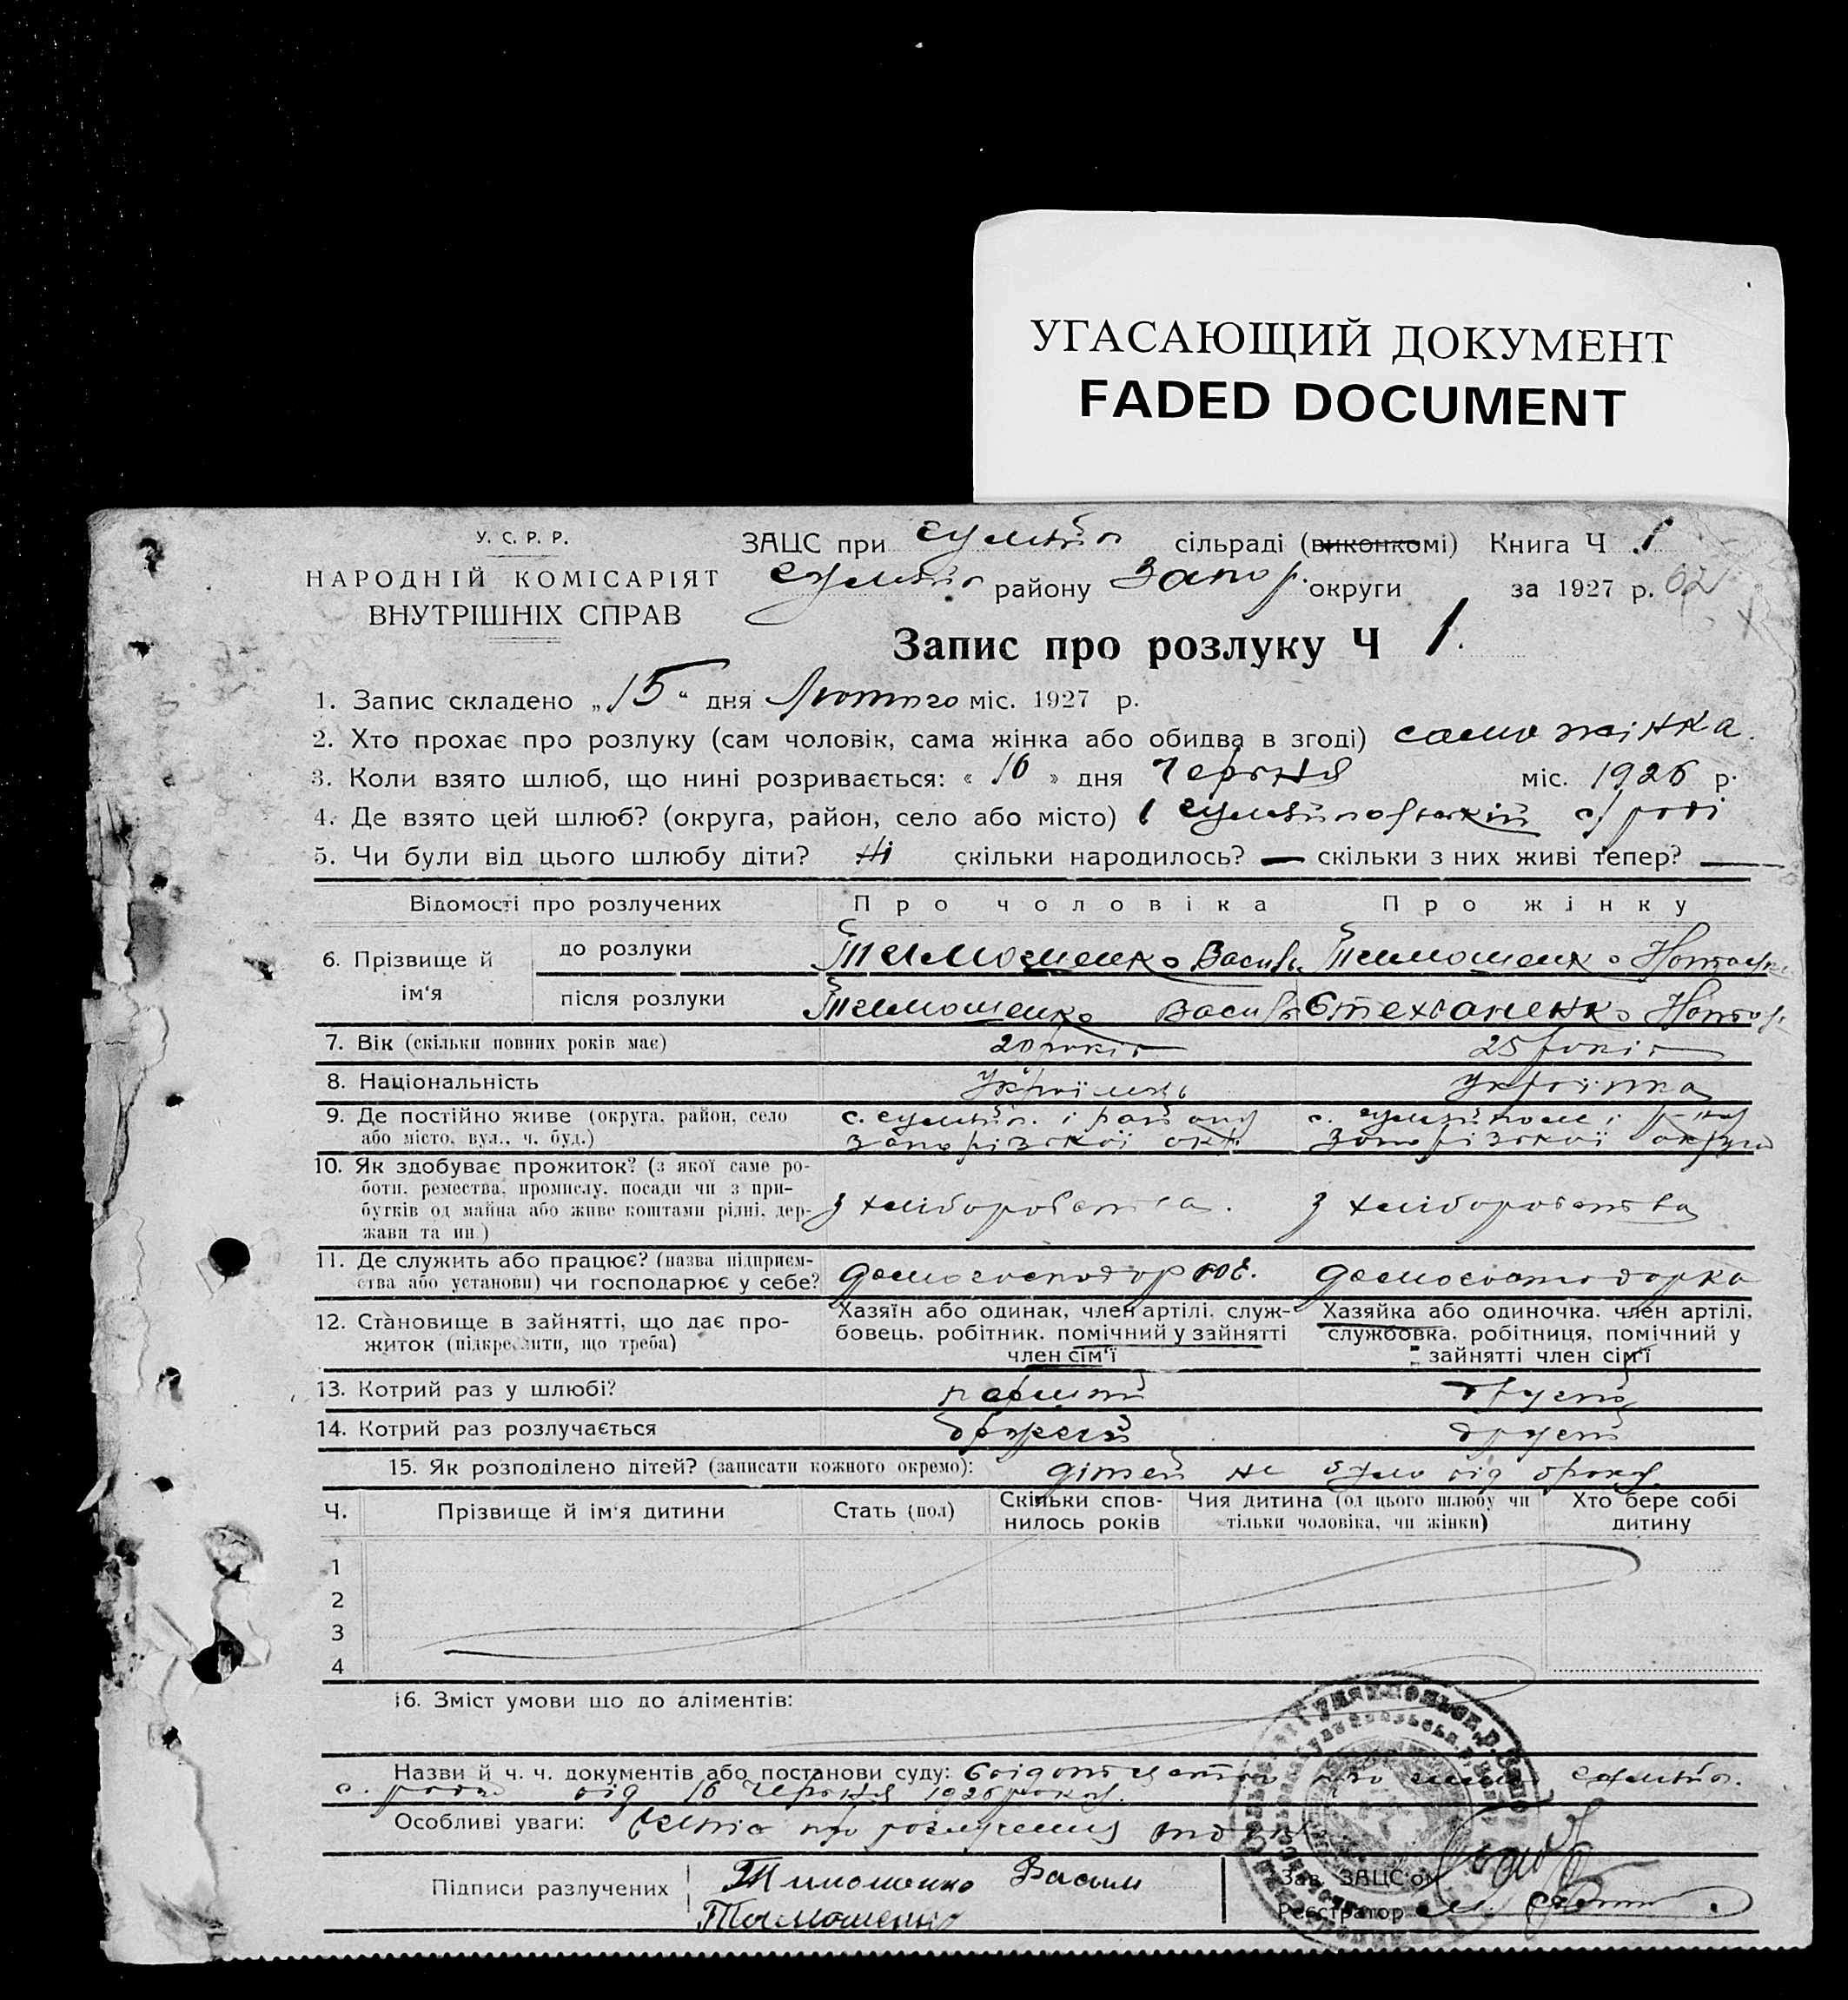 УГАСАЮЩИЙ ДОКУМЕНТ
FADED DOCUMENT
У. С. Р. Р.
НАРОДНІЙ КОМІСАРІЯТ
ВНУТРІШНІХ СПРАВ
ЗАЦС при сільраді (виконкомі) Книга Ч 1
району Запор. округи за 1927 р.
Запис про розлуку Ч 1.
1. Запис складено „15“ дня Лютого міс. 1927 р.
2. Хто прохає про розлуку (сам чоловік, сама жінка або обидва в згоді) сама жінка.
3. Коли взято шлюб, що нині розривається: « 16 » дня Червня міс. 1926 р.
4. Де взято цей шлюб? (округа, район, село або місто) в с/раді
5. Чи були від цього шлюбу діти? Ні скільки народилось? — скільки з них живі тепер? —
Відомості про розлучених Про чоловіка Про жінку
6. Прізвище й ім'я до розлуки Тимошенко Василь Тимошенко
після розлуки Тимошенко Василь
7. Вік (скільки повних років має) 20 років 25 років
8. Національність Українець Українка
9. Де постійно живе (округа, район, село або місто, вул., ч. буд.) с. і району Запорізської окр. с. Запорізської округи
10. Як здобуває прожиток? (з якої саме роботи, ремества, промислу, посади чи з прибутків од майна або живе коштами рідні, держави та ин.) З хліборобства. З хліборобства
11. Де служить або працює? (назва підприємства або установи) чи господарює у себе? домогосподарює. домогосподарка
12. Становище в зайнятті, що дає прожиток (підкреслити, що треба) Хазяїн або одинак, член артілі, службовець, робітник, помічний у зайнятті член сім'ї Хазяйка або одиночка, член артілі, службовка, робітниця, помічний у зайнятті член сім'ї
13. Котрий раз у шлюбі? первий другий
14. Котрий раз розлучається другий
15. Як розподілено дітей? (записати кожного окремо): дітей не було від
Ч. Прізвище й ім'я дитини Стать (пол) Скільки сповнилось років Чия дитина (од цього шлюбу чи тільки чоловіка, чи жінки) Хто бере собі дитину
1
2
3
4
16. Зміст умови що до аліментів:
Назви й ч. ч. документів або постанови суду: про
с. ради від 16 червня 1926 року.
Особливі уваги: про
Підписи розлучених Тимошенко Василь Зав. ЗАЦС'ом
Тимошенко Реєстратор